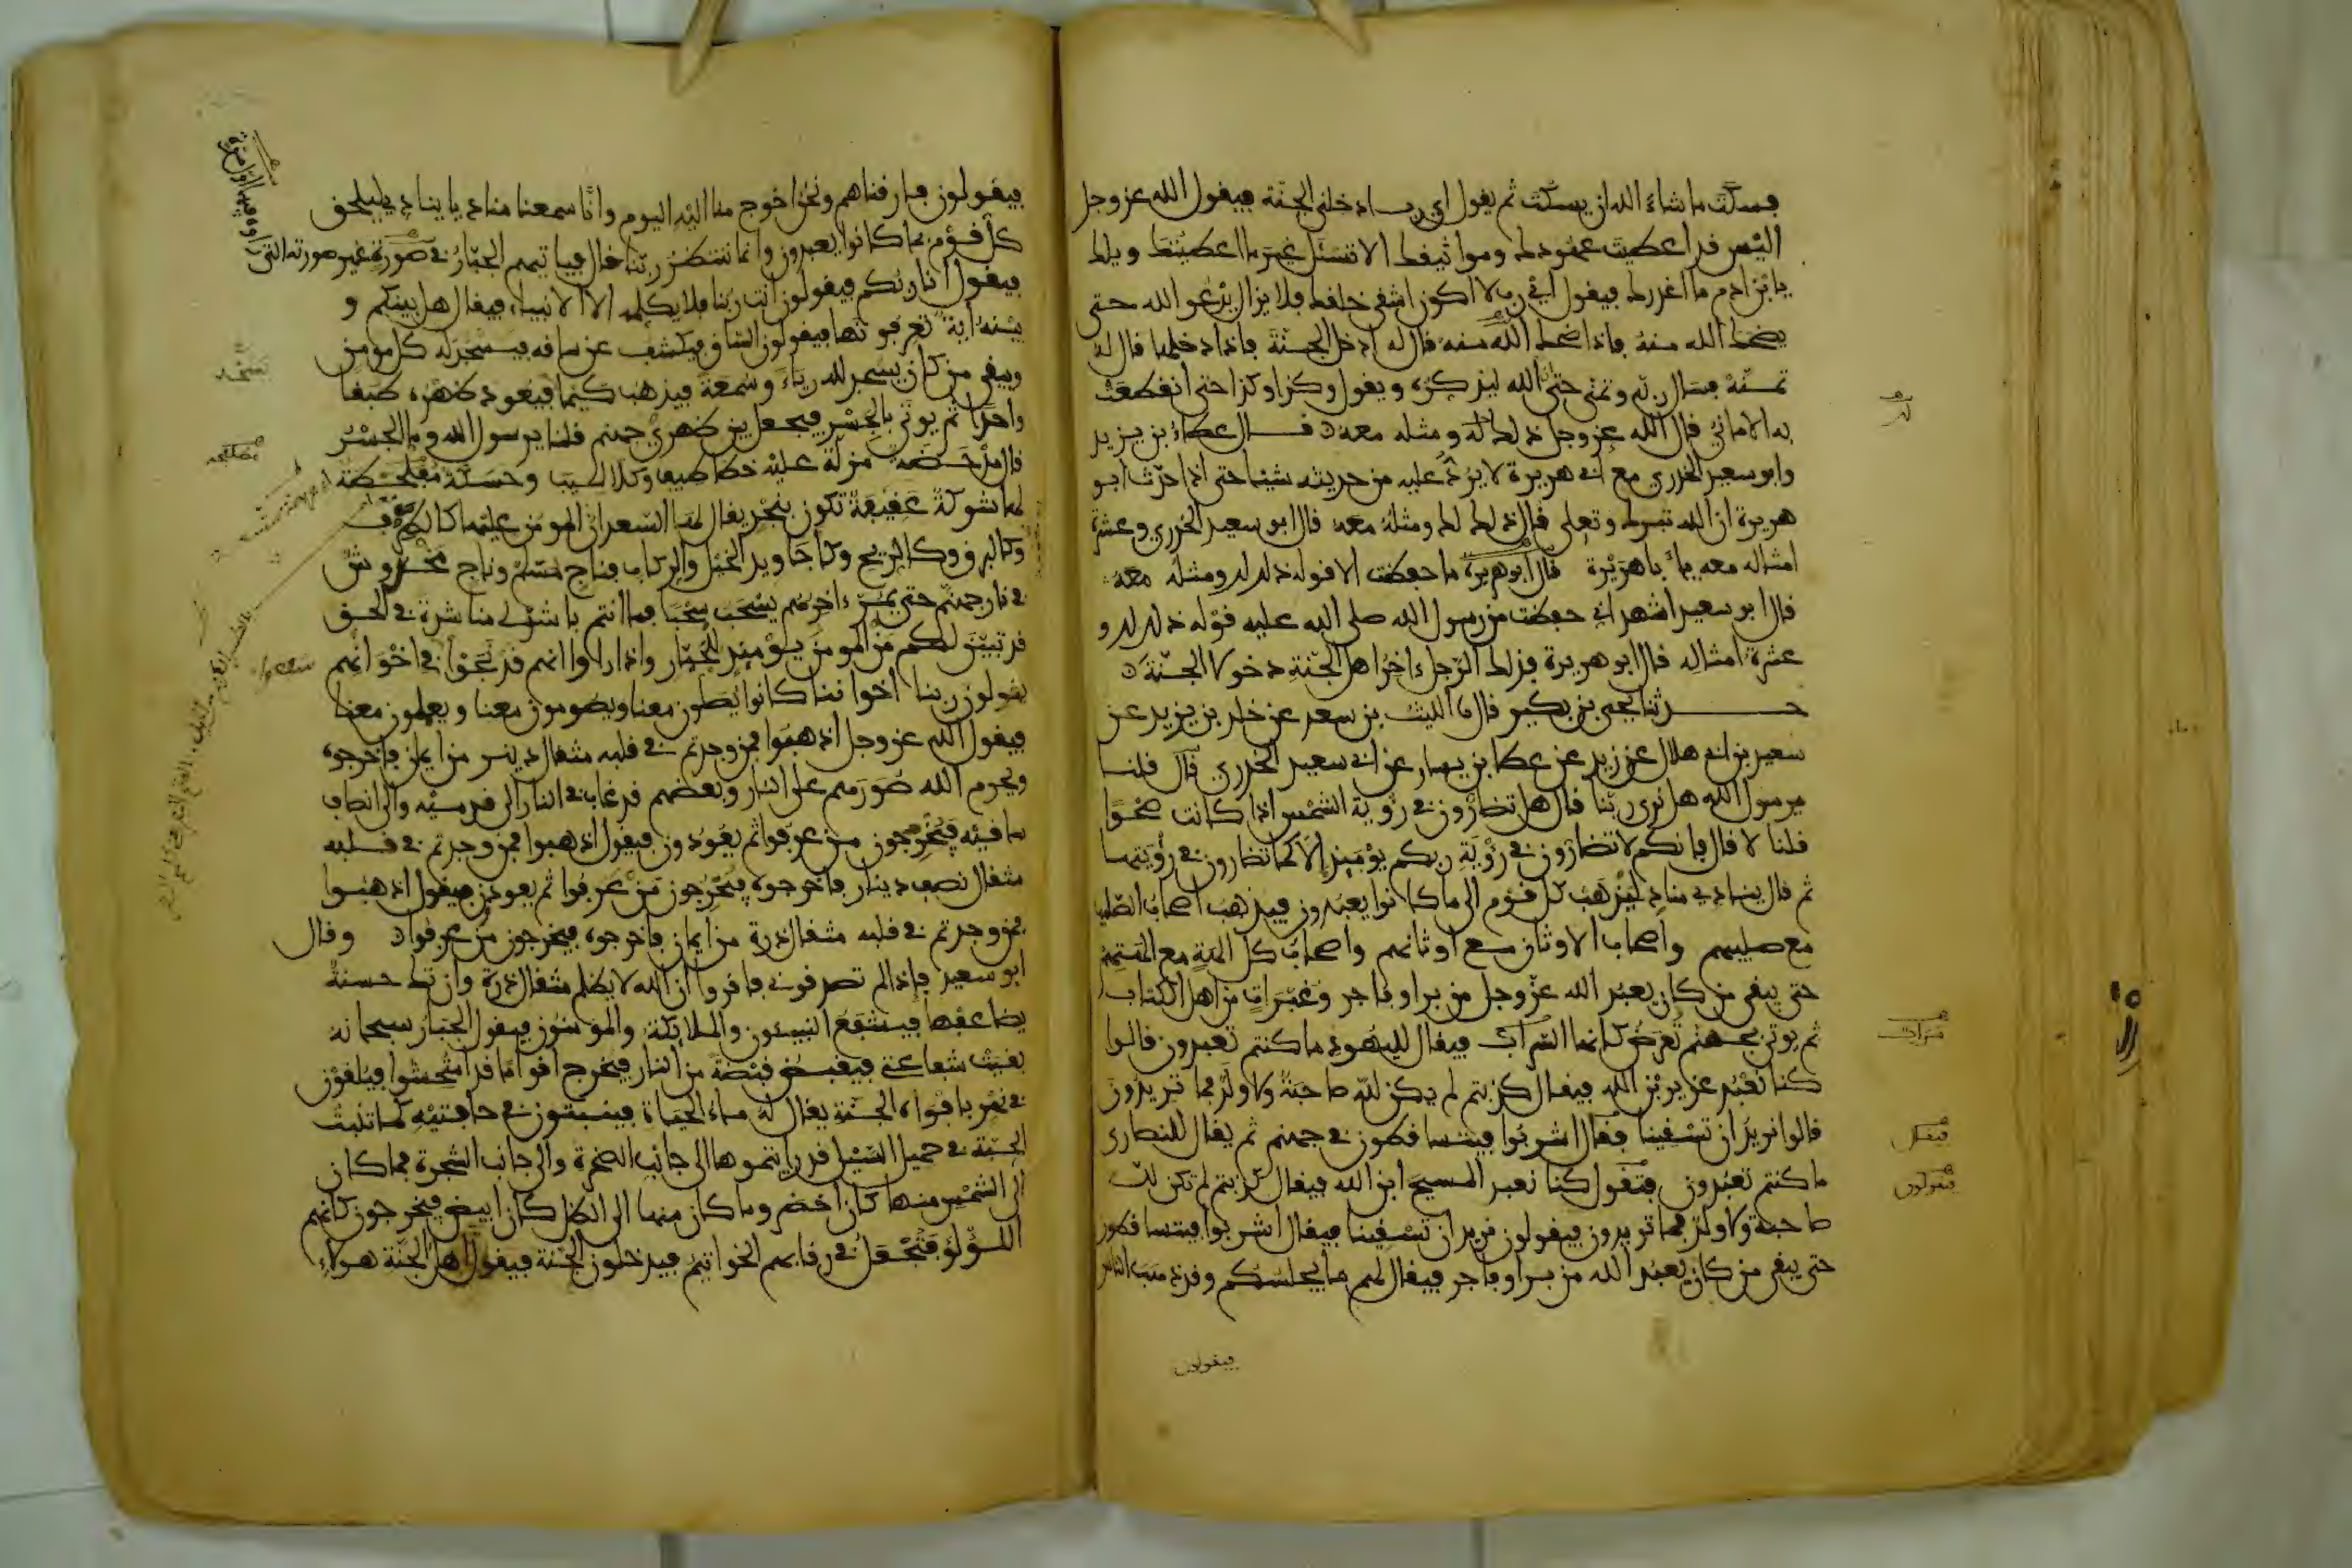 فسكت ما شاء الله ان يسكت ثم يقول اي رب ادخلني الجنة فيقول الله عز وجل
اليس قد اعطيت عهودك ومواثيقك الا تسئل غير ما اعطيتك ويلك
يا بن ادم ما اغدرك فيقول اي رب لا اكون اشقى خلقك فلا يزال يدعو الله حتى
يضحك الله منه فاذا ضحك الله منه قال له ادخل الجنة فاذا دخلها قال له
تمنه فسال ربه وتمنى حتى ان الله ليذكره ويقول وكذا وكذا حتى انقطعت
به الاماني قال الله عز وجل ذلك لك ومثله معه قال عطاء بن يزيد
وابو سعيد الخدري مع ابي هريرة لا يرد عليه من حديثه شيئا حتى اذا حدث ابو
هريرة ان الله تبرك وتعلى قال ذلك لك ومثله معه قال ابو سعيد الخدري وعشرة
امثاله معه يا با هريرة قال ابو هريرة ما حفظت الا قوله ذلك لك ومثله معه
قال ابو سعيد اشهد اني حفظت من رسول الله صلى الله عليه قوله ذلك لك و
عشرة امثاله قال ابو هريرة فذلك الرجل ءاخر اهل الجنة دخولا الجنة
حدثنا يحيى بن بكير قال نا الليث بن سعد عن خلد بن يزيد عن
سعيد بن ابي هلال عن زيد عن عطا بن يسار عن ابي سعيد الخدري قال قلنا
يرسول الله هل نرى ربنا قال هل تضارون في رؤية الشمس اذا كانت صحوا
قلنا لا قال فانكم لا تضارون في رؤية ربكم يومئذ الا كما تضارون في رؤيتهما
ثم قال ينادي مناد ليذهب كل قوم الى ما كانوا يعبدون فيذهب اصحاب الصليب
مع صليبهم واصحاب الاوثان مع اوثانهم واصحاب كل الهة مع الهتهم
حتى يبقى من كان يعبد الله عز وجل من بر او فاجر وغبرات من اهل الكتاب
ثم يوتى بجهنم تعرض كانها السراب فيقال لليهود ما كنتم تعبدون قالوا
كنا نعبد عزير بن الله فيقال كذبتم لم يكن لله صاحبة ولا ولد فما تريدون
قالوا نريد ان تسقينا فقال اشربوا فيتساقطون في جهنم ثم يقال للنصارى
ما كنتم تعبدون فنقول كنا نعبد المسيح ابن الله فيقال كذبتم لم تكن لله
صاحبة ولا ولد فما تريدون فيقولون نريد ان تسقينا فيقال اشربوا فيتساقطون
حتى يبقى من كان يعبد الله من بر او فاجر فيقال لهم ما يجلسكم وقد ذهب الناس
فيقولون
فيقال
فيقولون
فيقولون فارقناهم ونحن احوج منا اليه اليوم وانا سمعنا مناديا ينادي ليلحق
كل قوم بما كانوا يعبدون وانما ننتظر ربنا قال فياتيهم الجبار في صورة غير صورته التي
فيقول انا ربكم فيقولون انت ربنا فلا يكلمه الا الانبياء فيقال هل بينكم و
بينه اية تعرفونها فيقولون الساق فيكشف عن ساقه فيسجد له كل مومن
ويبقى من كان يسجد لله رياء وسمعة فيذهب كيما فيعود ظهره طبقا
واحدا ثم يوتى بالجسر فيجعل بين ظهري جهنم قلنا يرسول الله وما الجسر
قال مدحضة مزلة عليه خطاطيف وكلاليب وحسكة مفلطحة
لها شوكة عقيفة تكون بنجد يقال لها السعدان المومن عليها كالطرف
وكالبرق وكالريح وكاجاويد الخيل والركاب فناج مسلم وناج مخدوش
في نار جهنم حتى يمر ءاخرهم يسحب سحبا فما انتم باشد لي مناشدة في الحق
قد تبين لكم من المومن يومئذ للجبار واذا راوا انهم قد نجوا في اخوانهم
يقولون ربنا اخواننا كانوا يصلون معنا ويصومون معنا ويعملون معنا
فيقول الله عز وجل اذهبوا فمن وجدتم في قلبه مثقال دينر من ايمان فاخرجوه
ويحرم الله صورهم على النار وبعضهم قد غاب في النار الى قدميه والى انصاف
ساقيه فيخرجون من عرفوا ثم يعودون فيقول اذهبوا فمن وجدتم في قلبه
مثقال نصف دينار فاخرجوه فيخرجون من عرفوا ثم يعودون فيقول اذهبوا
فمن وجدتم في قلبه مثقال ذرة من ايمان فاخرجوه فيخرجون من عرفوا وقال
ابو سعيد فاذا لم تصدقوني فاقروا ان الله لا يظلم مثقال ذرة وان تك حسنة
يضاعفها فيشفع النبيئون والملائكة والمومنون فيقول الجبار سبحانه
بقيت شفاعتي فيقبض قبضة من النار فيخرج اقواما قد امتحشوا فيلقون
في نهر بافواه الجنة يقال له ماء الحياة فينبتون في حافتيه كما تنبت
الحبة في حميل السيل قد رايتموها الى جانب الصخرة والى جانب الشجرة فما كان
الى الشمس منها كان اخضر وما كان منها الى الظل كان ابيض فيخرجون كانهم
اللؤلؤ فتجعل في رقابهم الخواتيم فيدخلون الجنة فيقول اهل الجنة هولاء